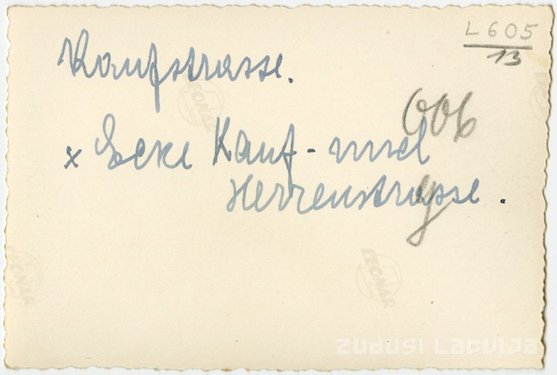 L605
13
Kaufstrasse.
006
x Ecke Kauf- und
Herrenstrasse.
LEONAR
LEONAR
LEONAR
ZUDUSI LATVIJA